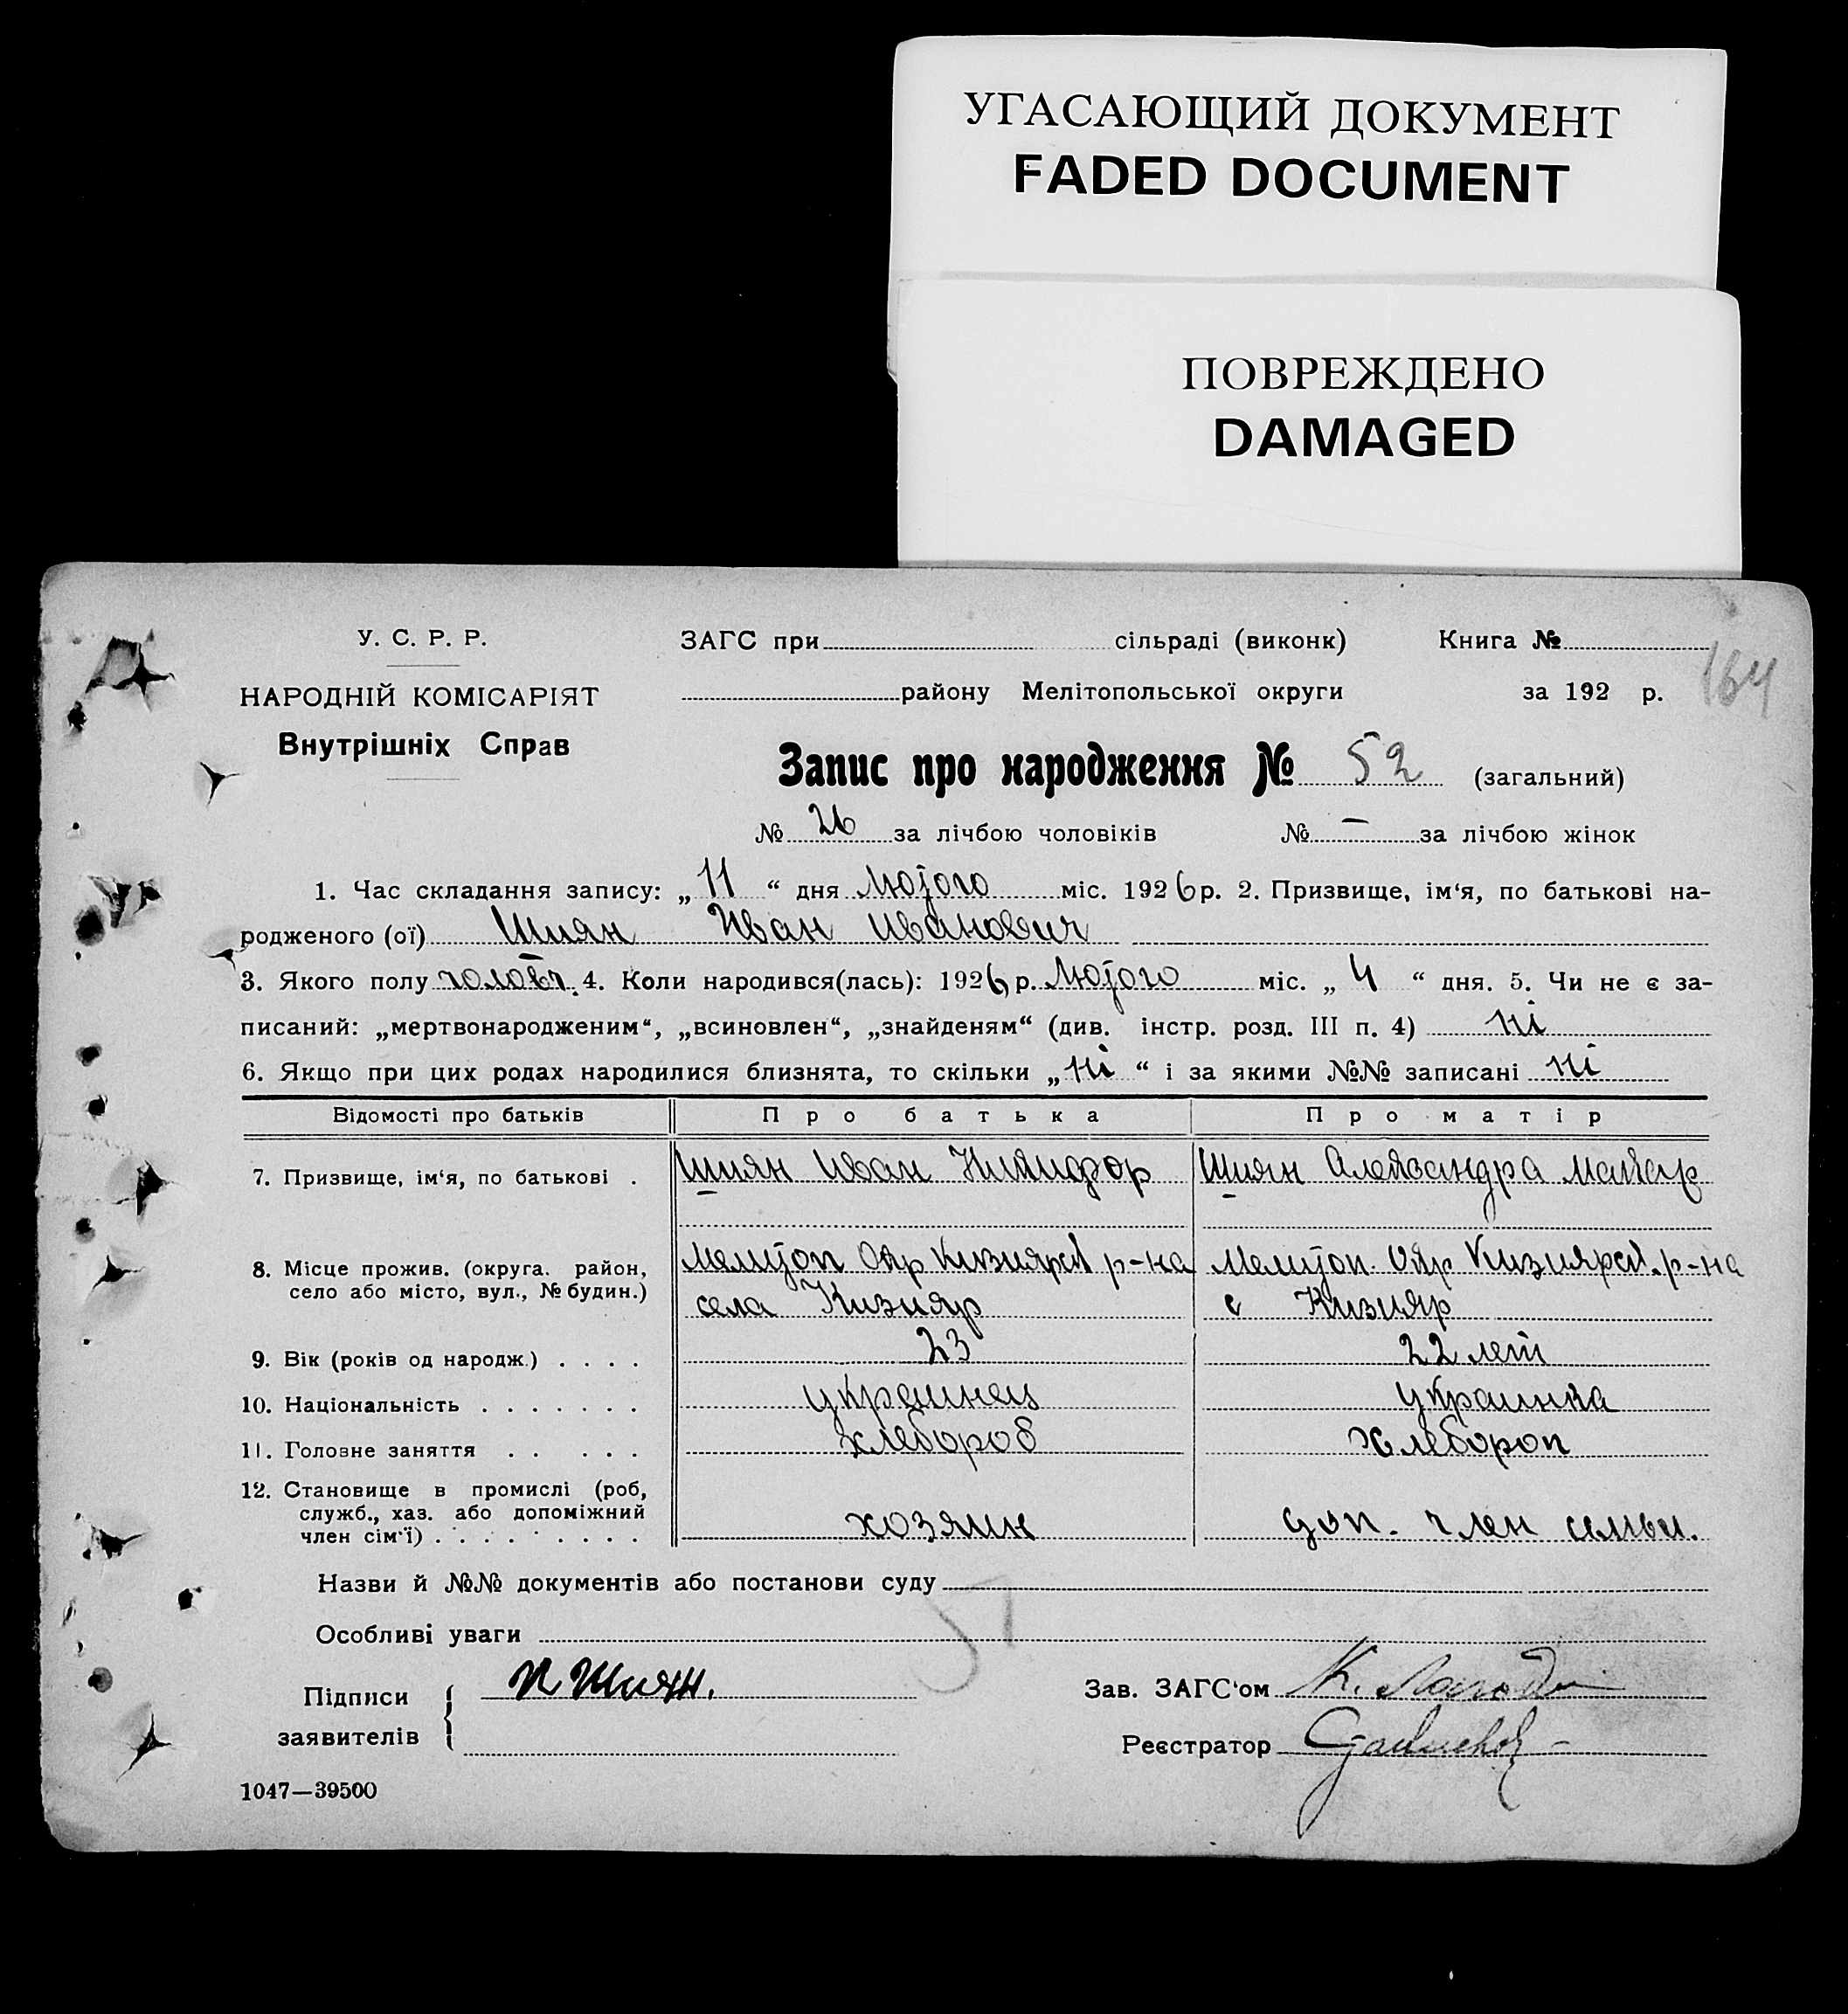 УГАСАЮЩИЙ ДОКУМЕНТ
FADED DOCUMENT
ПОВРЕЖДЕНО
DAMAGED
У. С. Р. Р.
НАРОДНІЙ КОМІСАРІЯТ
Внутрішніх Справ
ЗАГС при сільраді (виконк) Книга №
164
району Мелітопольської округи за 192 р.
Запис про народження № 52 (загальний)
№ 26 за лічбою чоловіків № — за лічбою жінок
1. Час складання запису: „11“ дня Лютого міс. 1926 р. 2. Призвище, ім‘я, по батькові на-
родженого (ої) Шиян Иван Иванович
3. Якого полу чоловч. 4. Коли народився(лась): 1926 р. Лютого міс. „4“ дня. 5. Чи не є за-
писаний: „мертвонародженим“, „всиновлен“, „знайденям“ (див. інстр. розд. III п. 4) ні
6. Якщо при цих родах народилися близнята, то скільки „ні“ і за якими №№ записані ні
Відомості про батьків Про батька Про матір
7. Призвище, ім‘я, по батькові . Шиян Иван Никифор Шиян Александра Макар
8. Місце прожив. (округа. район, село або місто, вул., № будин.) Мелитоп Окр Кизиярск р-на села Кизияр Мелитоп. Окр Кизиярск. р-на с Кизияр
9. Вік (років од народж.) . . . . 23 22 лет
10. Національність . . . . . . . украинец украинка
11. Головне заняття . . . . . хлебороб хлебороп
12. Становище в промислі (роб, служб., хаз. або допоміжний член сім‘ї) . . . . . . . . хозяин доп. член семьи.
Назви й №№ документів або постанови суду
Особливі уваги
51
Підписи заявителів И Шиян.
Зав. ЗАГС‘ом К.
Реєстратор
1047—39500